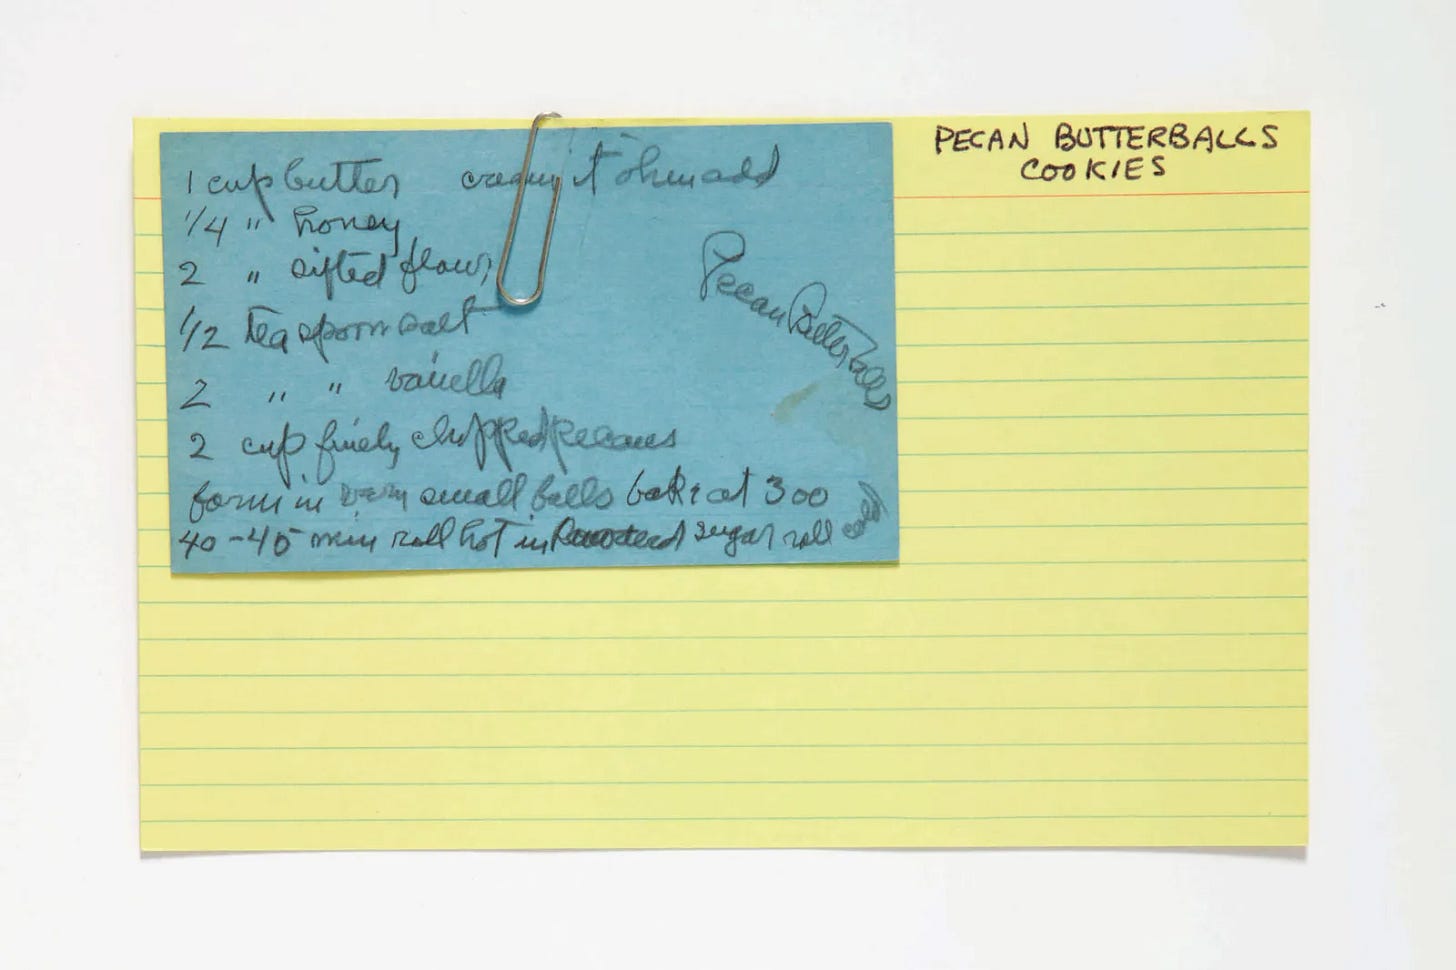 PECAN BUTTERBALLS
COOKIES
1 cup butter cream it then add
1/4 " honey
2 " sifted flour
1/2 teaspoon salt
2 " " vanilla
2 cup finely chopped pecans
form in very small balls bake at 300
40-45 min roll hot in Powdered sugar roll cold
Pecan Butterballs